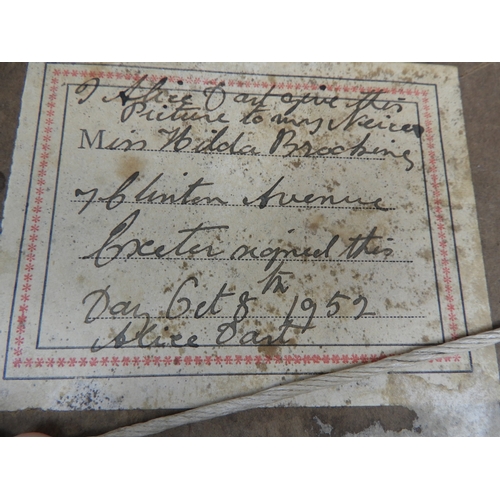 I Alice East give this
Picture to my Neice
Miss Hilda Brooking
7 Clinton Avenue
Exeter signed this
Day Oct 8th 1952
Alice East